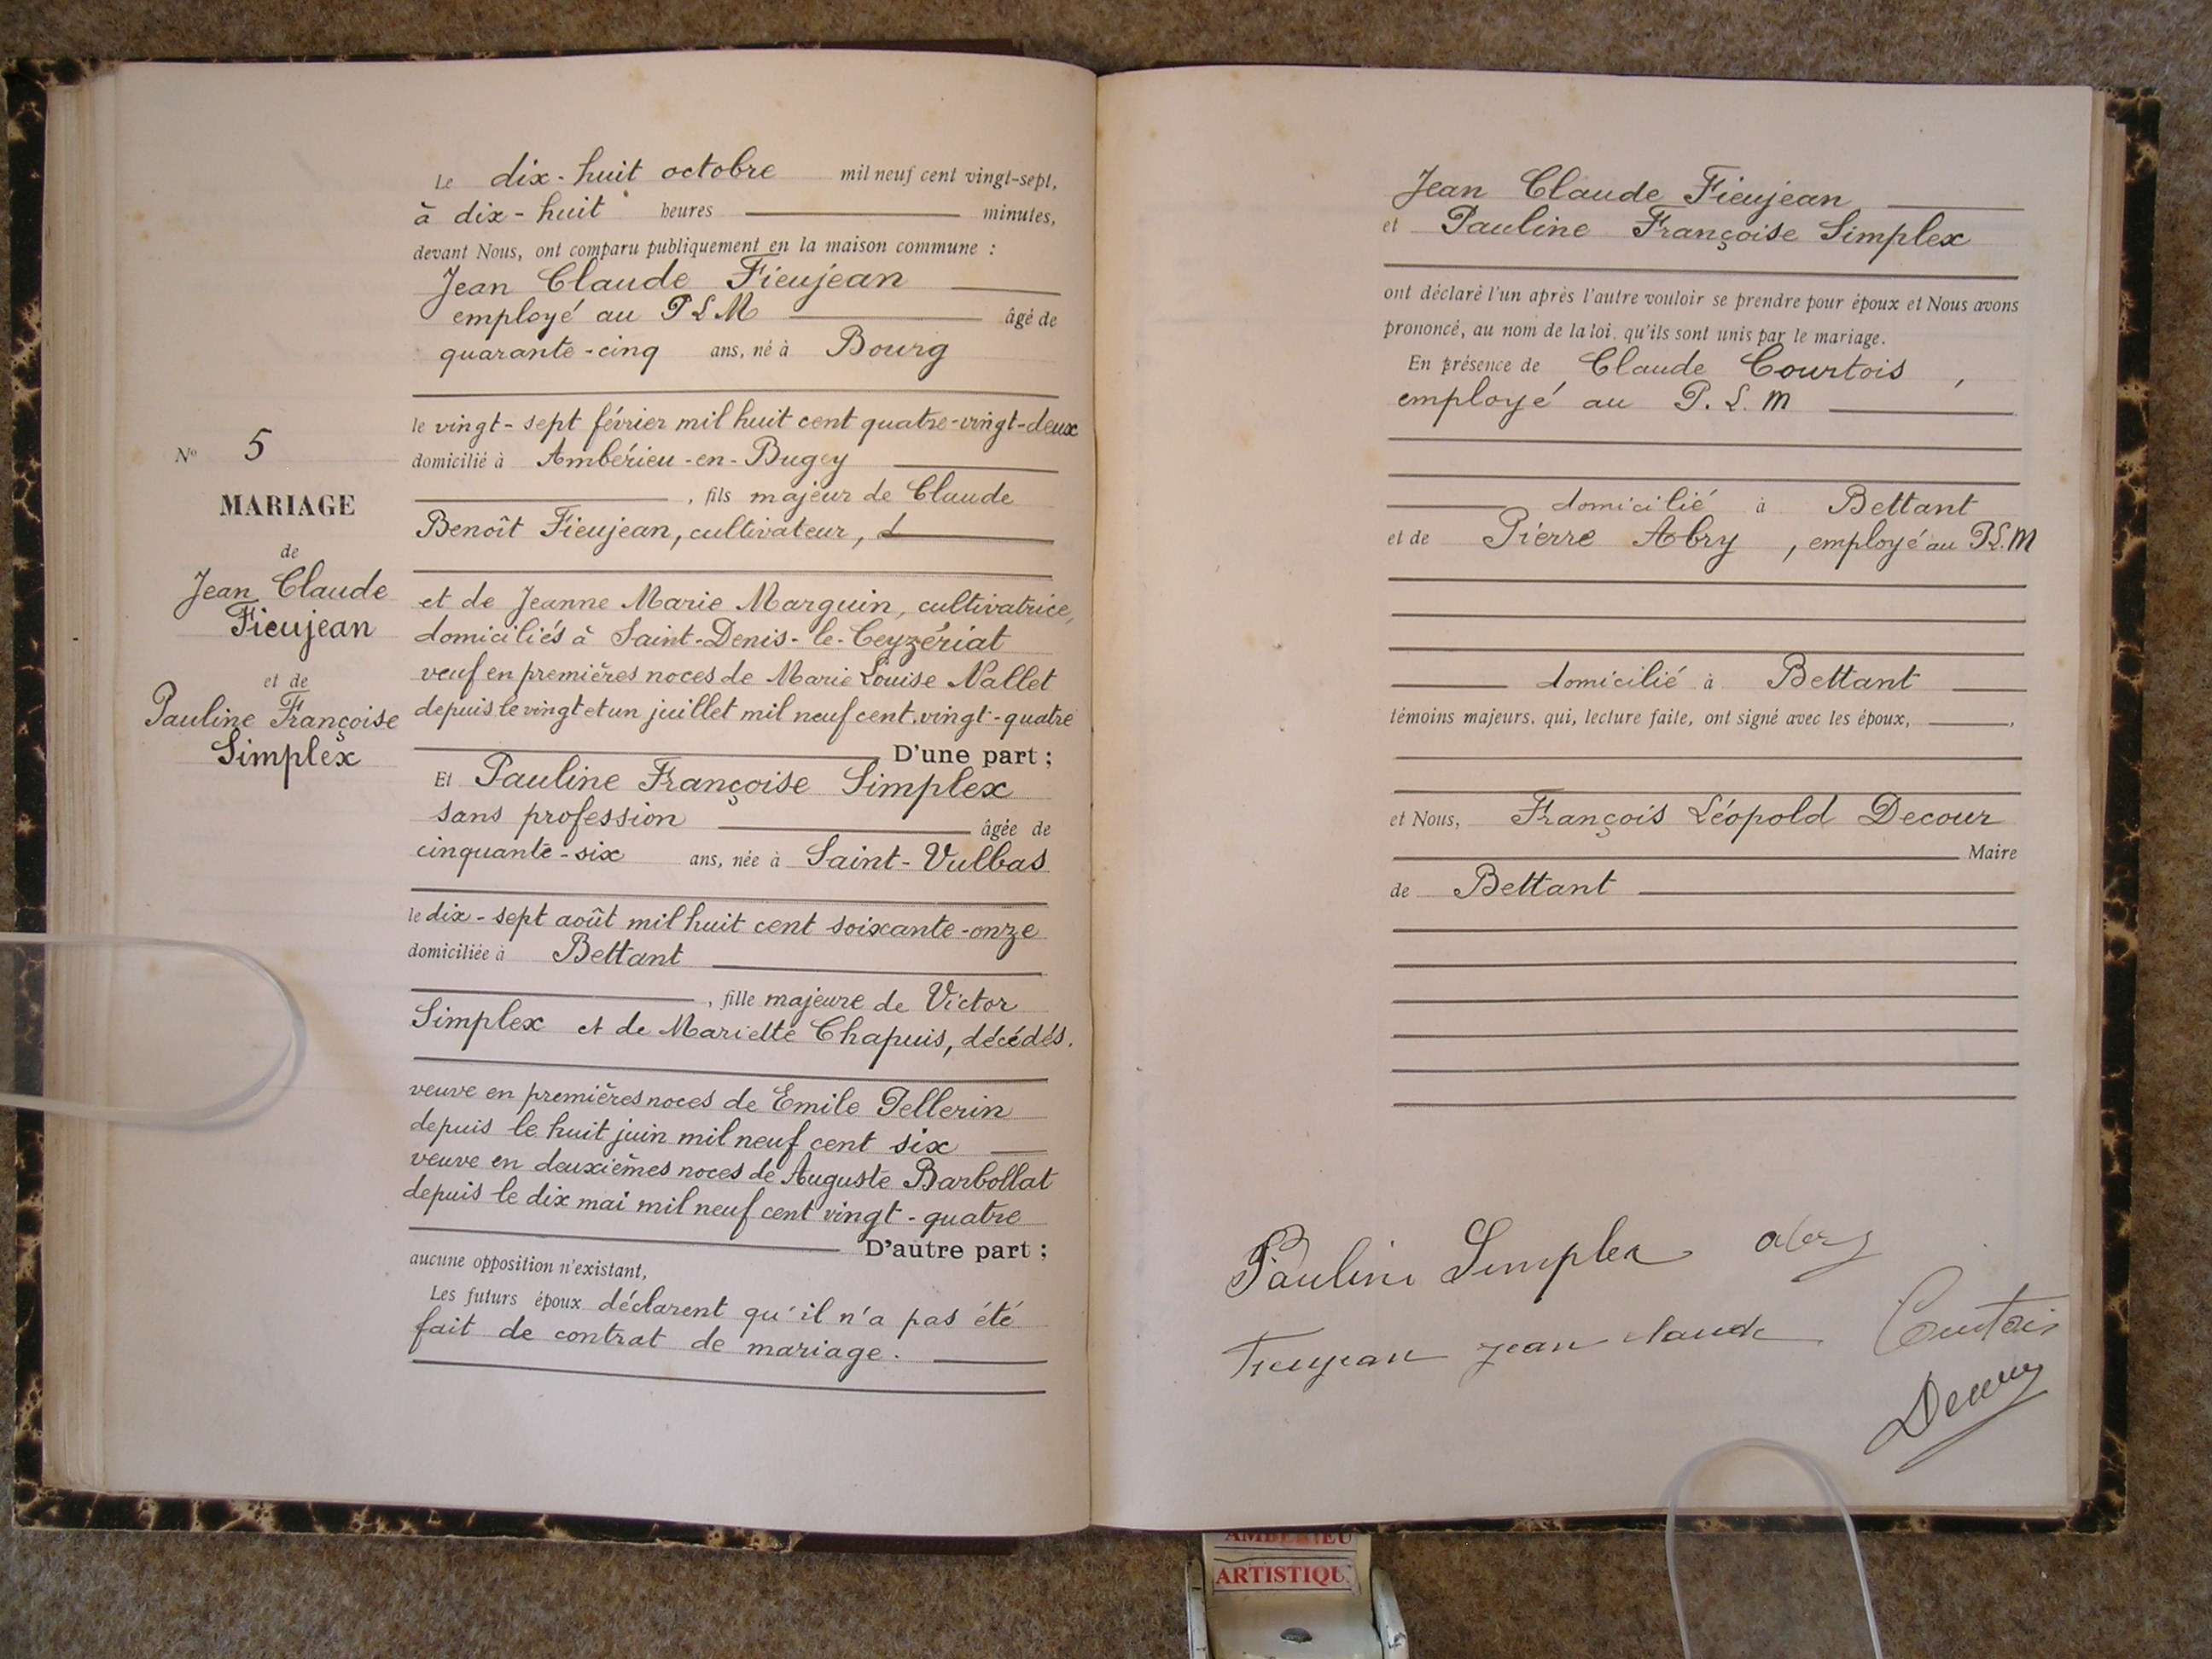 Nº 5
MARIAGE
de
Jean Claude
Fieujean
et de
Pauline Françoise
Simplex
Le dix-huit octobre mil neuf cent vingt-sept,
à dix-huit heures minutes,
devant Nous, ont comparu publiquement en la maison commune :
Jean Claude Fieujean
employé au P L M âgé de
quarante-cinq ans, né à Bourg
le vingt-sept février mil huit cent quatre-vingt-deux
domicilié à Ambérieu-en-Bugey
, fils majeur de Claude
Benoît Fieujean, cultivateur,
et de Jeanne Marie Marguin, cultivatrice,
domiciliés à Saint-Denis-le-Ceyzériat
veuf en premières noces de Marie Louise Nallet
depuis le vingt et un juillet mil neuf cent vingt-quatre
D'une part ;
Et Pauline Françoise Simplex
sans profession âgée de
cinquante-six ans, née à Saint-Vulbas
le dix-sept août mil huit cent soixante-onze
domiciliée à Bettant
, fille majeure de Victor
Simplex et de Mariette Chapuis, décédés.
veuve en premières noces de Emile Pellerin
depuis le huit juin mil neuf cent six
veuve en deuxièmes noces de Auguste Barbollat
depuis le dix mai mil neuf cent vingt-quatre
D'autre part ;
aucune opposition n'existant,
Les futurs époux déclarent qu'il n'a pas été
fait de contrat de mariage.
Jean Claude Fieujean
et Pauline Françoise Simplex
ont déclaré l'un après l'autre vouloir se prendre pour époux et Nous avons
prononcé, au nom de la loi, qu'ils sont unis par le mariage.
En présence de Claude Courtois,
employé au P. L. M
domicilié à Bettant
et de Pierre Abry, employé au P.L.M
domicilié à Bettant
témoins majeurs, qui, lecture faite, ont signé avec les époux,
et Nous, François Léopold Decour
Maire
de Bettant
Pauline Simplex abry
Fieujean jean claude Courtois
Decour
AMBERIEU
ARTISTIQU